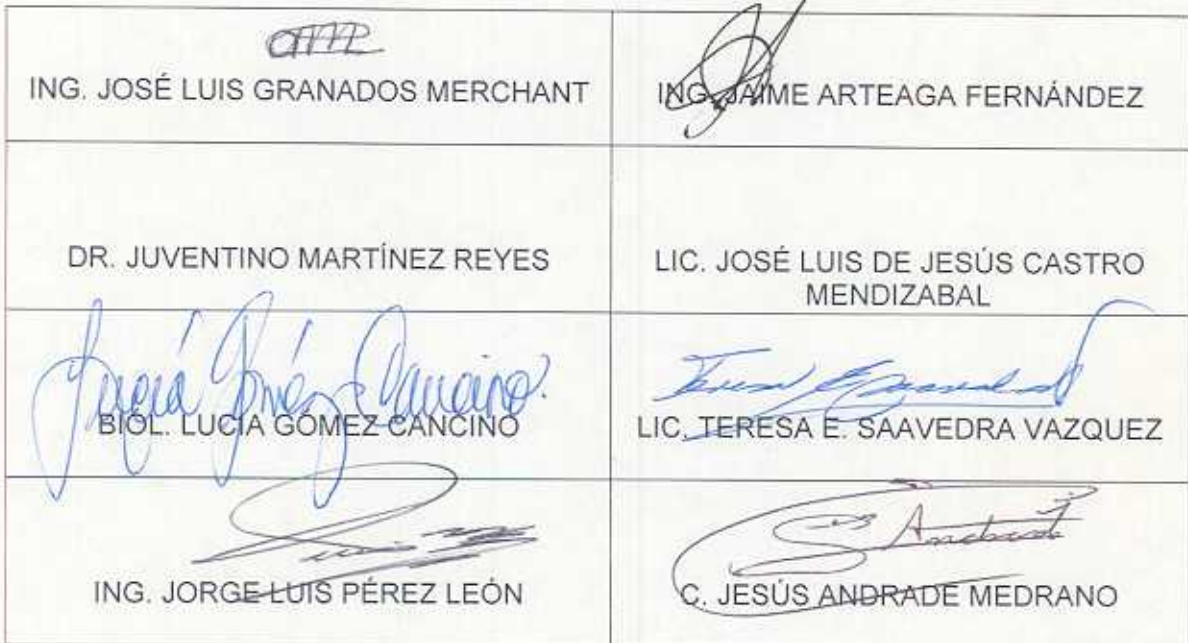 ING. JOSÉ LUIS GRANADOS MERCHANT
ING. JAIME ARTEAGA FERNÁNDEZ
DR. JUVENTINO MARTÍNEZ REYES
LIC. JOSÉ LUIS DE JESÚS CASTRO
MENDIZABAL
Lucía Gómez Cancino.
BIÓL. LUCIA GÓMEZ CANCINO
LIC. TERESA E. SAAVEDRA VAZQUEZ
ING. JORGE LUIS PÉREZ LEÓN
Andrade
C. JESÚS ANDRADE MEDRANO